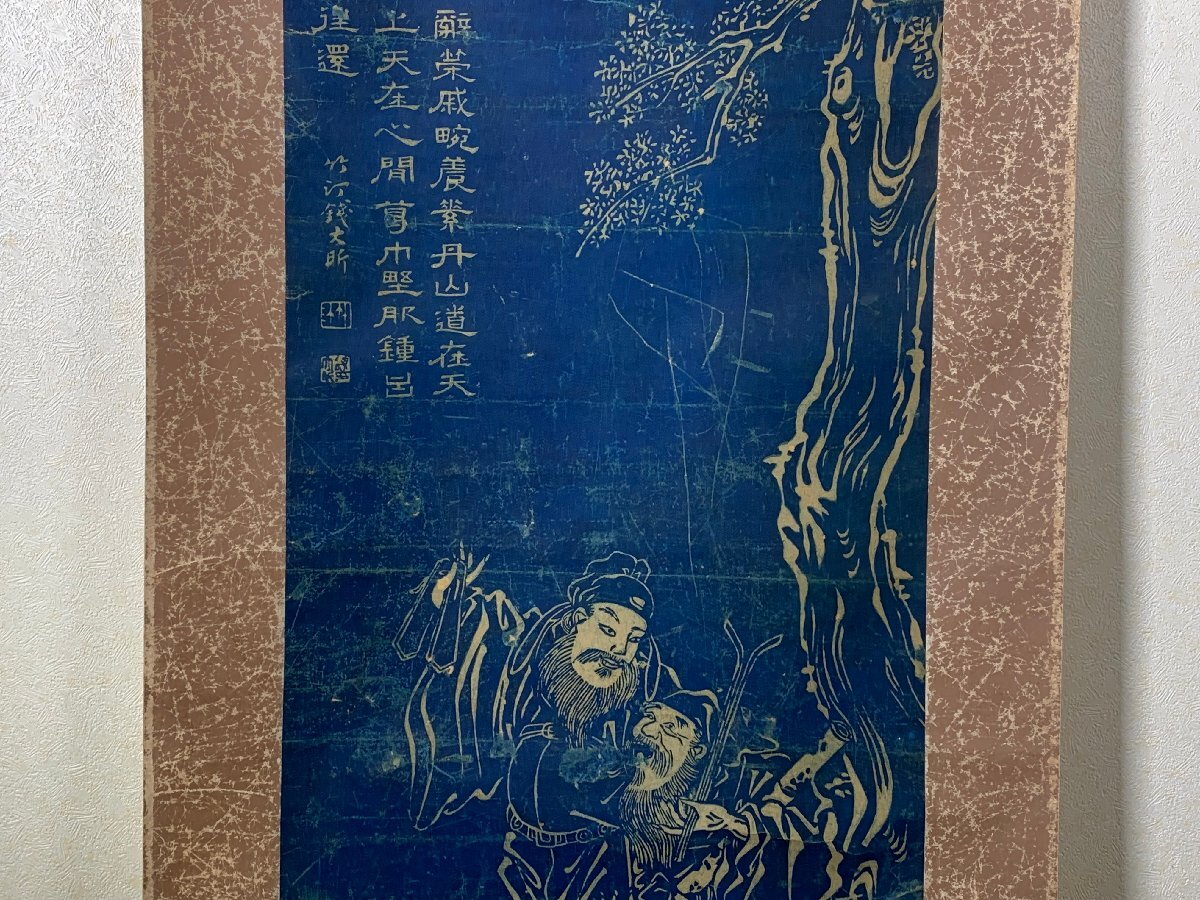 辭榮戚畹養素丹山道在天
上天在心間葛巾野服鍾呂
往還
竹汀錢大昕